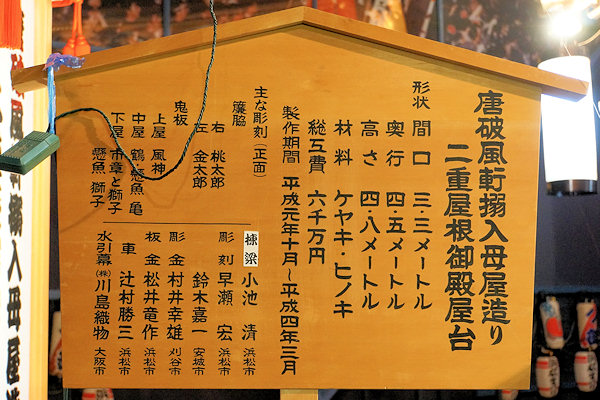 唐破風軒搦入母屋造り
二重屋根御殿屋台
形状 間口 三・三メートル
奥行 四・五メートル
高さ 四・八メートル
材料 ケヤキ・ヒノキ
総工費 六千万円
製作期間 平成元年十月~平成四年三月
主な彫刻(正面)
簾脇
右 桃太郎
左 金太郎
鬼板
上屋 風神
中屋 鶴・懸魚 亀
下屋 市章と獅子
懸魚 獅子
棟梁 小池 清 浜松市
彫刻 早瀬 宏 浜松市
鈴木嘉一 安城市
彫金 村井幸雄 刈谷市
板金 松井竜作 浜松市
車 辻村勝三 浜松市
水引幕 ㈱川島織物 大阪市